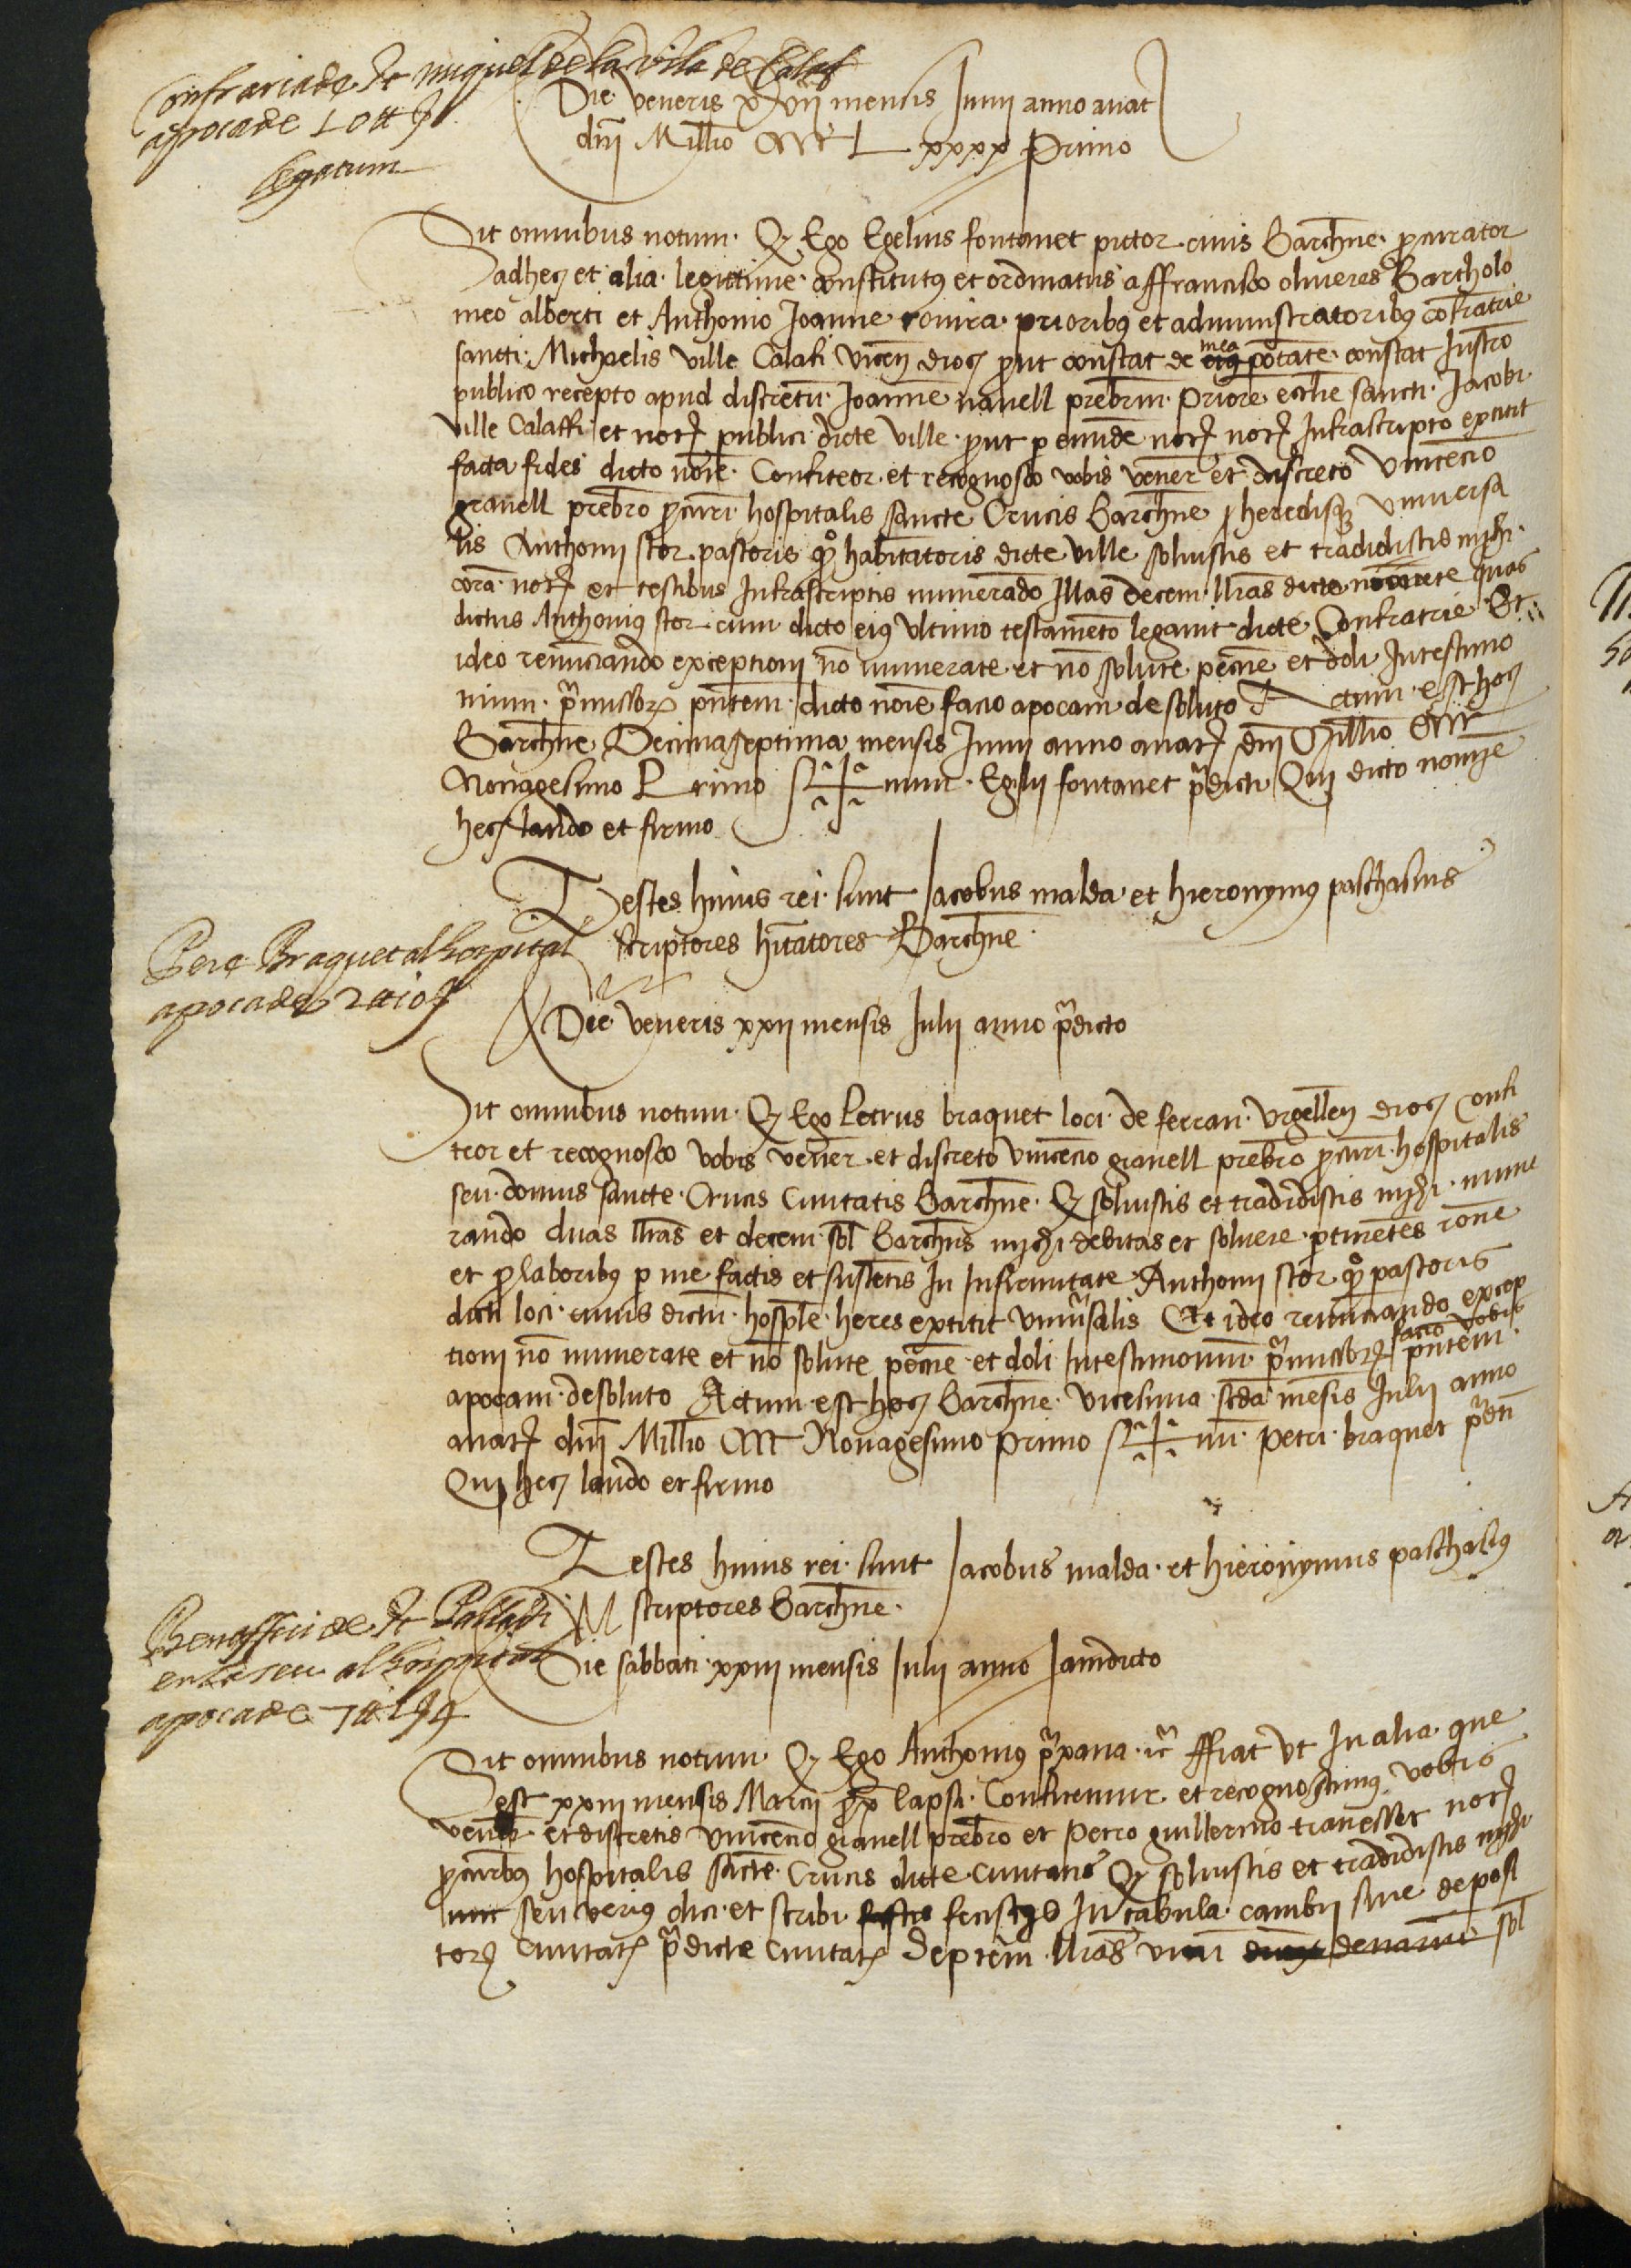 Confraria de St miquel de la vila de Calaf
apoca de 10 ₶ ß
legatum
Die veneris xvii mensis Junii anno a nat
dnī Millio CCCC L xxxx Primo
Sit omnibus notum. Q Ego Egelius fontanet pictor civis Barchne. procurator
ad hec et alia. legittime. constitutus et ordinatus a ffrancisco oliveres Bartholo
meo alberti et Anthonio Joanne rovira. prioribus et administratoribus cofratrie
sancti. Michaelis ville Calafi vicen dioc prout constat de mea potate. constat Instro
publico recepto apud discretu. Joanne navell prebrm. Priore ecclie sancti. Jacobi.
ville Calaffi. et nott publici. dicte ville. prout p eiunde nott nott Infrascripto extitit
facta fides dicto noie. Confiteor. et recognosco vobis vener et discreto Vincencio
gravell prebro procuri. hospitalis sancte Crucis Barchne heredisque universa
lis Anthonii stor. pastoris quo habitatoris dicte ville solvistis et tradidistis mihi.
cora. nott et testibus Infrascriptis numerado Illas decem. llras dicte monete quas
dictus Anthonius stor. cum dicto eius ultimo testameto legavit dicte Confratrie Et
ideo renunciando exceptioni no numerate. et no solute. pecnie et doli In testimo
nium. premissorz pntem. dicto noie facio apocam de soluto Actum. est hoc
Barchne Decimaseptima mensis Junii anno a nat dni Millio CCCC
Nonagesimo Primo S+num. Egilii fontanet predicti Qui dicto nomie
hec laudo et firmo
Testes huius rei. sunt Jacobus malda et hieronymus paschasius
scriptores hitatores Barchne.
Pere Braquet al hospital
apoca de 2 ₶ 10 ß
Die. veneris xxii mensis Julii anno predicto
Sit omnibus notum. Q Ego Petrus braquet loci. de ferran. Urgellen dioc Confi
teor et recognosco vobis vener. et discreto vincencio gravell prebro procuri. hospitalis
seu. domus sancte. Crucis Civitatis Barchne. Q solvistis et tradidistis mihi. nume
rando duas llras et decem. sol Barchns mihi debitas et solvere. ptinetes rone
et pro laboribus p me factis et sustetis In Infirmitate Anthonii stor. quo pastoris
dicti loci. cuius dictu. hosple. heres extitit universalis Et ideo renunciando excep
tioni no numerate et no solute pecnie. et doli In testimonium. premissorz facio vobis pntem.
apocam. de soluto Actum. est hoc Barchne. Vicesima scda mesis Julii anno
a nat dni Millio CCCC Nonagesimo primo S+nu. Petri. braquet predti
Qui hec laudo et firmo
Testes huius rei. sunt Jacobus malda. et hieronymus paschasius
scriptores Barchne.
Beneffici de St Palladi
en la seu al hospital
apoca de 7 ₶ 1 ß 9
Die sabbati. xxiii mensis Julii anno Jamdicto
Sit omnibus notum Q Ego Anthonius prexana. etc ffiat ut In alia que
est xxiii mensis Marcii prox lapsi. Confitemur et recognoscimus vobis
vener. et discretis vincencio gravell prebro et Petro guillermo travesset nott
procuribus hospitalis sancte. Crucis dicte civitatis Q solvistis et tradidistis mihi
seu verius dici. et scribi fecistis In tabula cambii sive deposi
torz civitatz predicte civitatz Septem. llras unu denarium sol